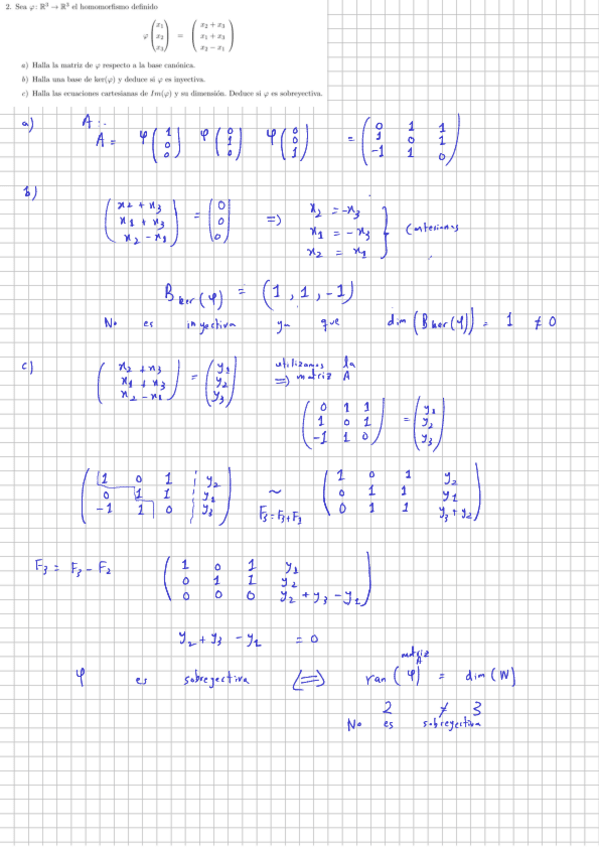 2. Sea φ: ℝ³ → ℝ³ el homomorfismo definido
φ (x₁ x₂ x₃) = (x₂ + x₃ x₁ + x₃ x₂ − x₁)
a) Halla la matriz de φ respecto a la base canónica.
b) Halla una base de ker(φ) y deduce si φ es inyectiva.
c) Halla las ecuaciones cartesianas de Im(φ) y su dimensión. Deduce si φ es sobreyectiva.
a) A:.
A = φ(1 0 0) φ(0 1 0) φ(0 0 1) = (0 1 1
1 0 1
-1 1 0)
b)
(x2 + x3 x1 + x3 x2 - x1) = (0 0 0) => x2 = -x3
x1 = -x3
x2 = x1
} Cartesianas
B ker(φ) = (1, 1, -1)
No es inyectiva ya que dim(B ker(φ)) = 1 ≠ 0
c) (x2 + x3 x1 + x3 x2 - x1) = (y1 y2 y3) utilizamos la
=> matriz A
(0 1 1
1 0 1
-1 1 0) = (y1 y2 y3)
(1 0 1 | y2
0 1 1 | y1
-1 1 0 | y3) ~ F3 = F3 + F1 (1 0 1 y2
0 1 1 y1
0 1 1 y3 + y2)
F3 = F3 - F2 (1 0 1 y1
0 1 1 y2
0 0 0 y2 + y3 - y1)
y2 + y3 - y1 = 0
matriz A
φ es sobreyectiva <=> ran(φ) = dim(W)
2 ≠ 3
No es sobreyectiva